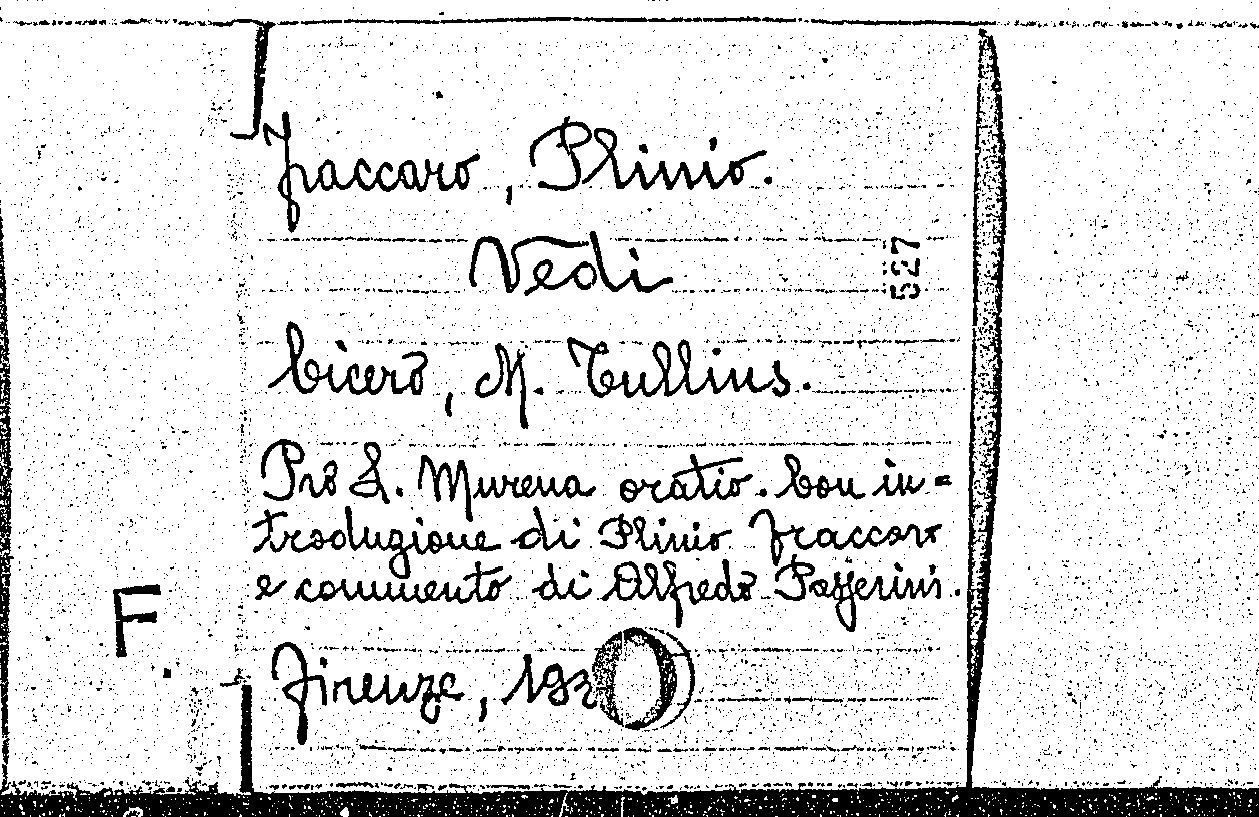 Fraccaro, Plinio.
Vedi
527
Cicero, M. Tullius.
Pro L. Murena oratio. Con in=
troduzione di Plinio Fraccaro
e commento di Alfredo Passerini.
F.
Firenze, 193